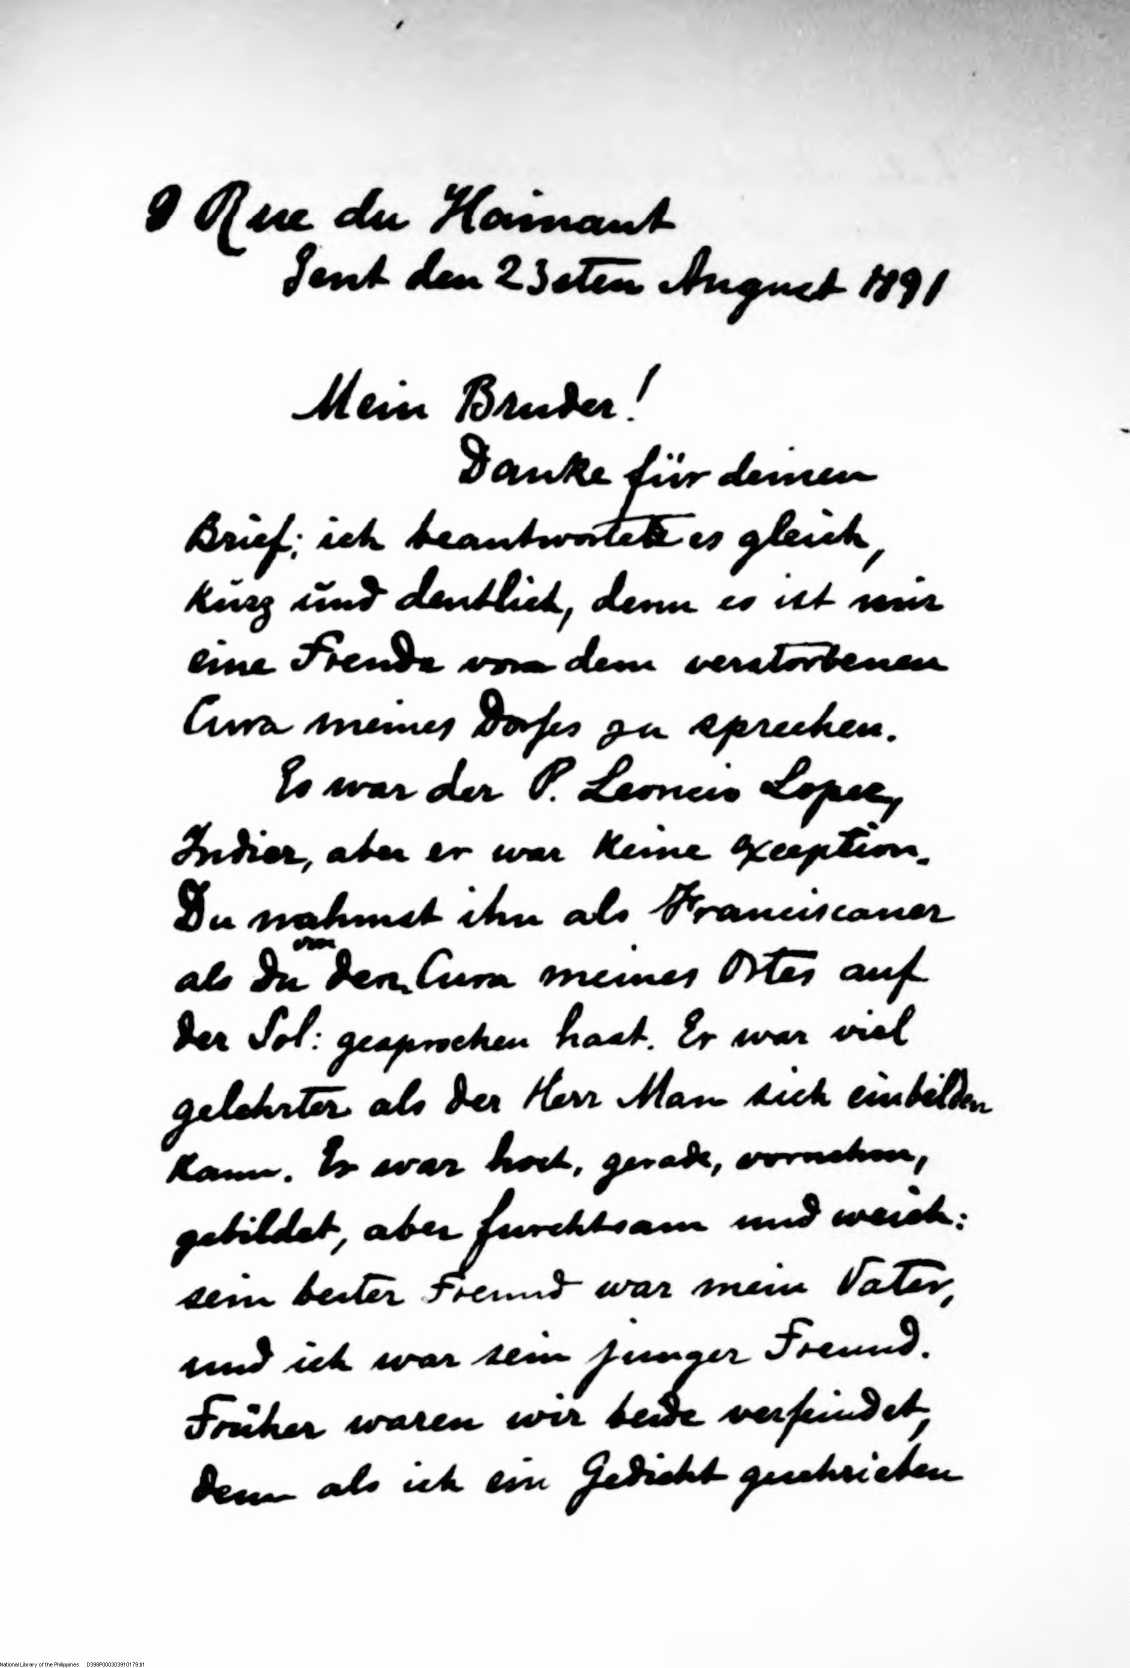 9 Rue du Hainaut
Gent den 23sten August 1891
Mein Bruder!
Danke für deinen
Brief; ich beantwortete es gleich,
kurz und deutlich, denn es ist mir
eine Freude von dem verstorbenen
Cura meines Dorfes zu sprechen.
Es war der P. Leoncio Lopez,
Indier, aber er war keine exception.
Du nahmst ihn als Franciscaner
als du von den Cura meines Ortes auf
der Sol: gesprochen hast. Er war viel
gelehrter als der Herr Man sich einbilden
kann. Er war hoch, gerade, vornehm,
gebildet, aber furchtsam und weich:
sein bester Freund war mein Vater,
und ich war sein junger Freund.
Früher waren wir beide verfeindet,
denn als ich ein Gedicht geschrieben
National Library of the Philippines